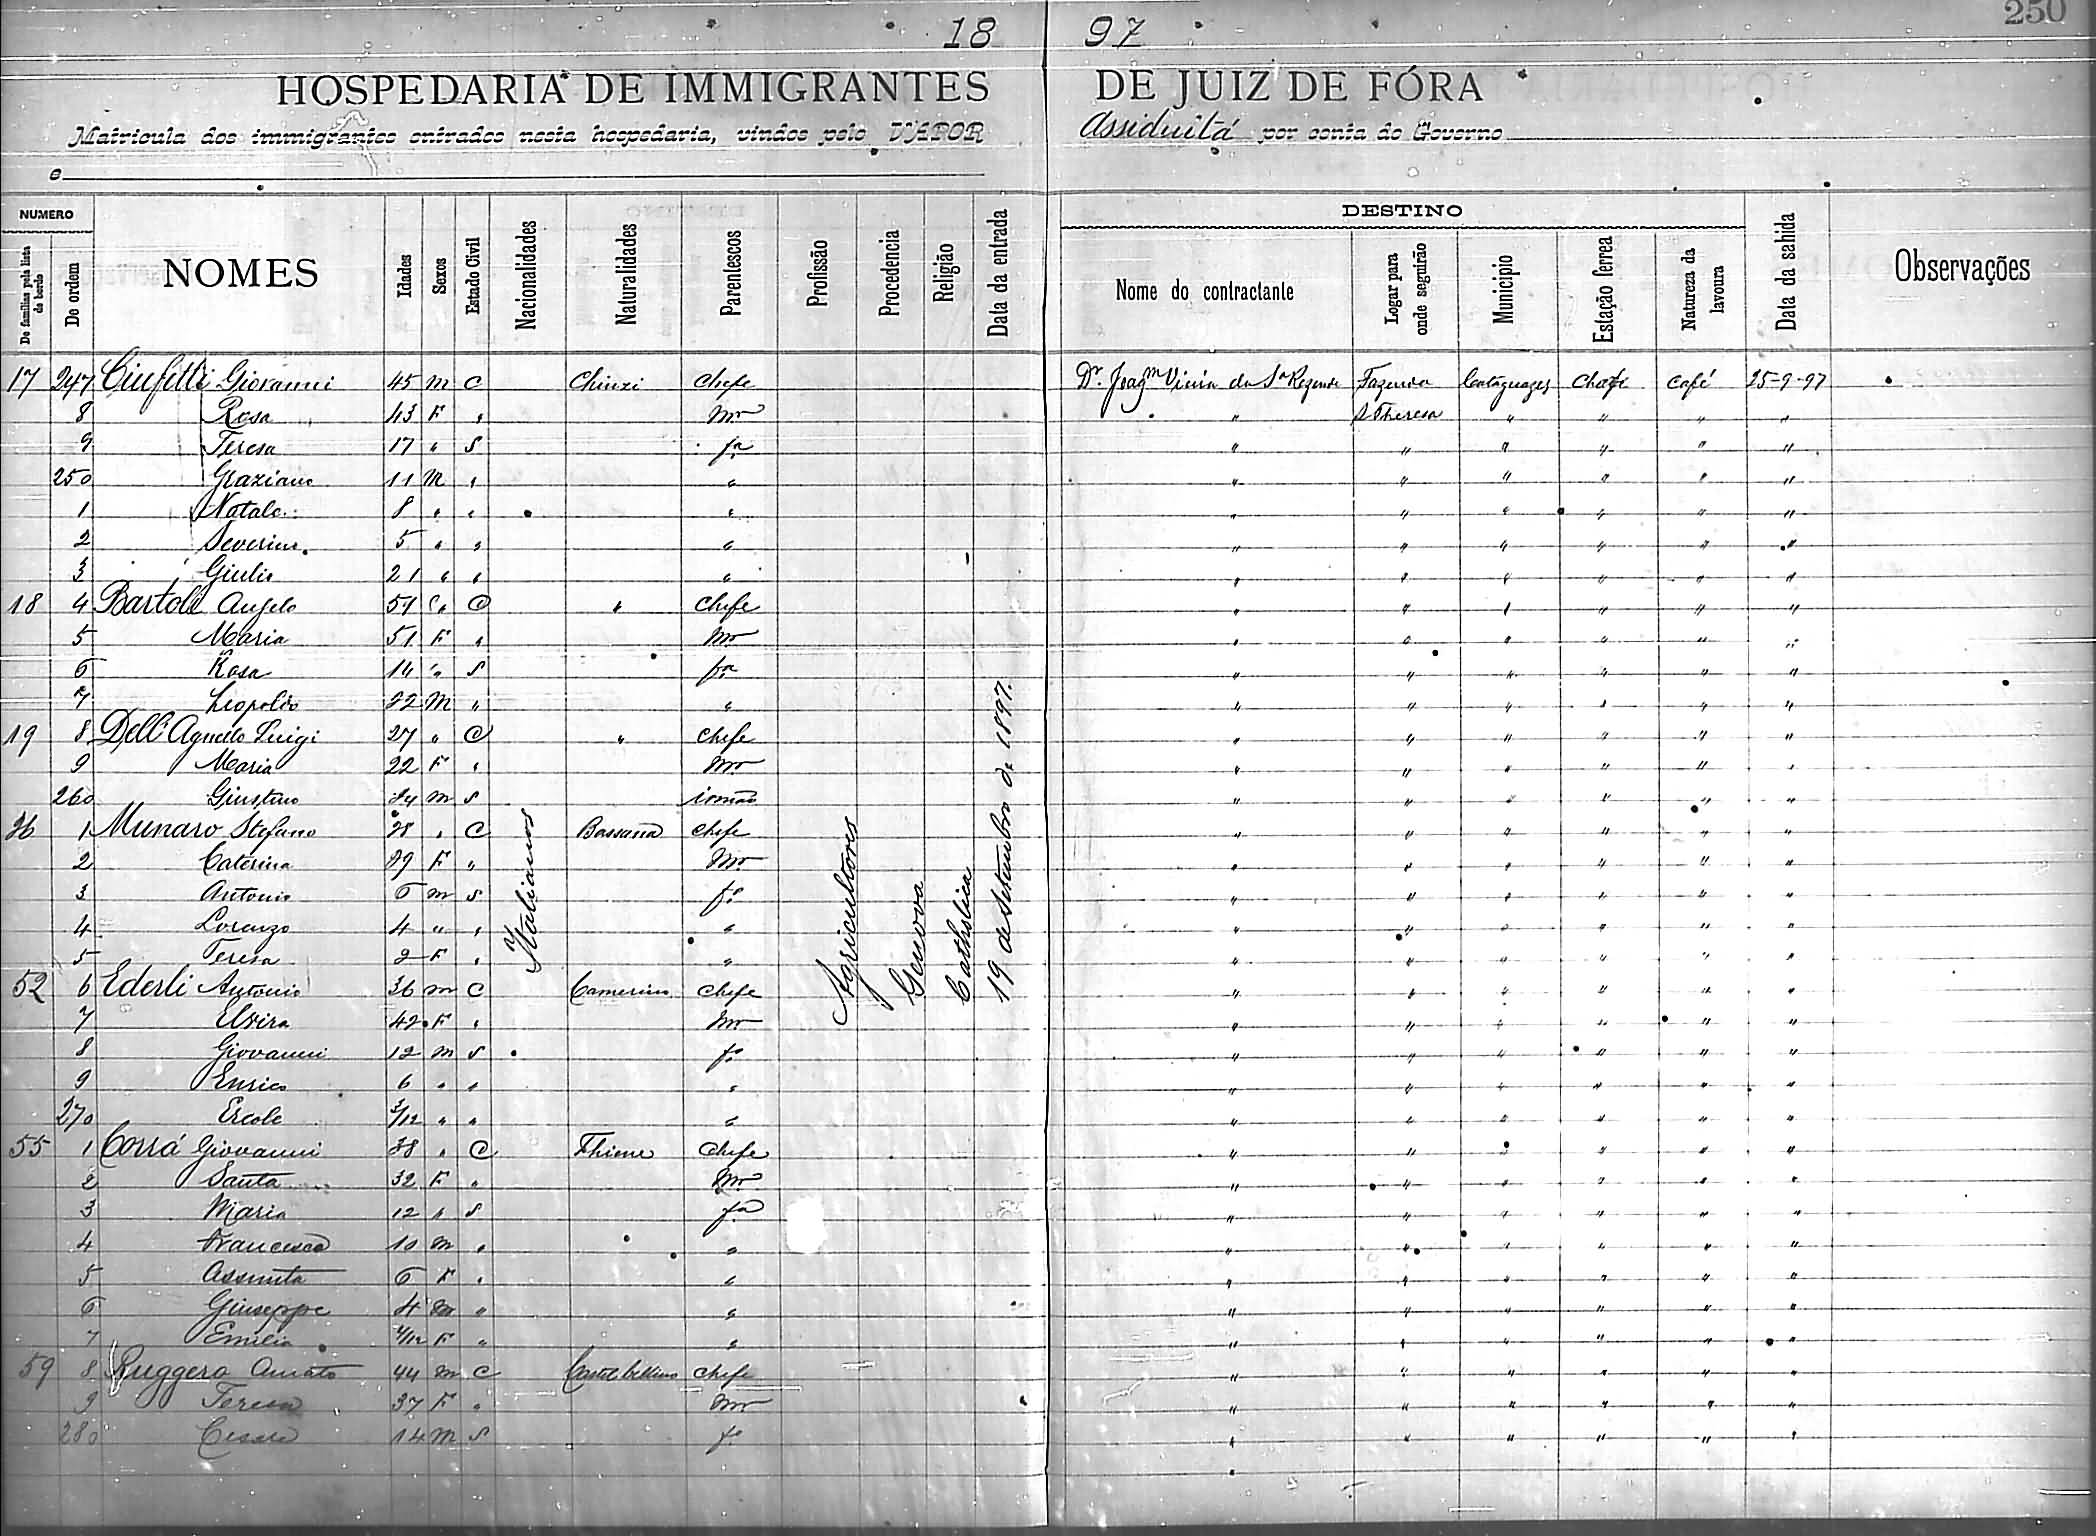 250
18 97
HOSPEDARIA DE IMMIGRANTES DE JUIZ DE FÓRA
Matricula dos immigrantes entrados nesta hospedaria, vindos pelo VAPOR Assiduitá por conta do Governo
e
NUMERO
De familias pela lista de bordo
De ordem
NOMES
Idades
Sexos
Estado Civil
Nacionalidades
Naturalidades
Parentescos
Profissão
Procedencia
Religião
Data da entrada
DESTINO
Nome do contractante
Logar para onde seguirão
Municipio
Estação ferrea
Natureza da lavoura
Data da sahida
Observações
17 247 Giovanni 45 M C Chinzi Chefe Dr. Joaqm Vieira da Sa Rezende Fazenda Cataguazes café 25-9-97
8 Rosa 43 F " Mer " Sta Theresa " " " "
9 Teresa 17 " S fa " " " " " "
250 Graziano 11 M " " " " " " " "
1 Natale 8 " " " " " " " " "
2 Severino 5 " " " " " " " " "
3 Giulio 21 " " " " " " " " "
18 4 Bartoli Angelo 51 " C " Chefe " " " " " "
5 Maria 51 F " Mer " " " " " "
6 Rosa 14 " S fa " " " " " "
7 Leopoldo 22 M " " " " " " " "
19 8 Dell'Agnello Luigi 27 " C " Chefe " " " " " "
9 Maria 22 F " Mer " " " " " "
260 Giustino 24 M S irmão " " " " " "
26 1 Munaro Stefano 28 " C Bassano Chefe " " " " " "
2 Caterina 29 F " Mer " " " " " "
3 Antonio 6 M S fo " " " " " "
4 Lorenzo 4 " " " " " " " " "
5 Teresa 2 F " " " " " " " "
52 6 Ederli Antonio 36 M C Camerino Chefe " " " " " "
7 Elvira 42 F " Mer " " " " " "
8 Giovanni 12 M S fo " " " " " "
9 Enrico 6 " " " " " " " " "
270 Ercole 3/12 " " " " " " " " "
55 1 Corrá Giovanni 38 " C Thiene Chefe " " " " " "
2 Santa 32 F " Mer " " " " " "
3 Maria 12 " S fa " " " " " "
4 Francesco 10 M " " " " " " " "
5 Assunta 6 F " " " " " " " "
6 Giuseppe 4 M " " " " " " " "
7 Emilia /12 F " " " " " " " "
59 8 Ruggero Amato 44 M C Castelbellino Chefe " " " " " "
9 Teresa 37 F " Mer " " " " " "
280 Cesare 14 M S fo " " " " " "
Italianos
Agricultores
Genova
Catholica
19 de Setembro de 1897.